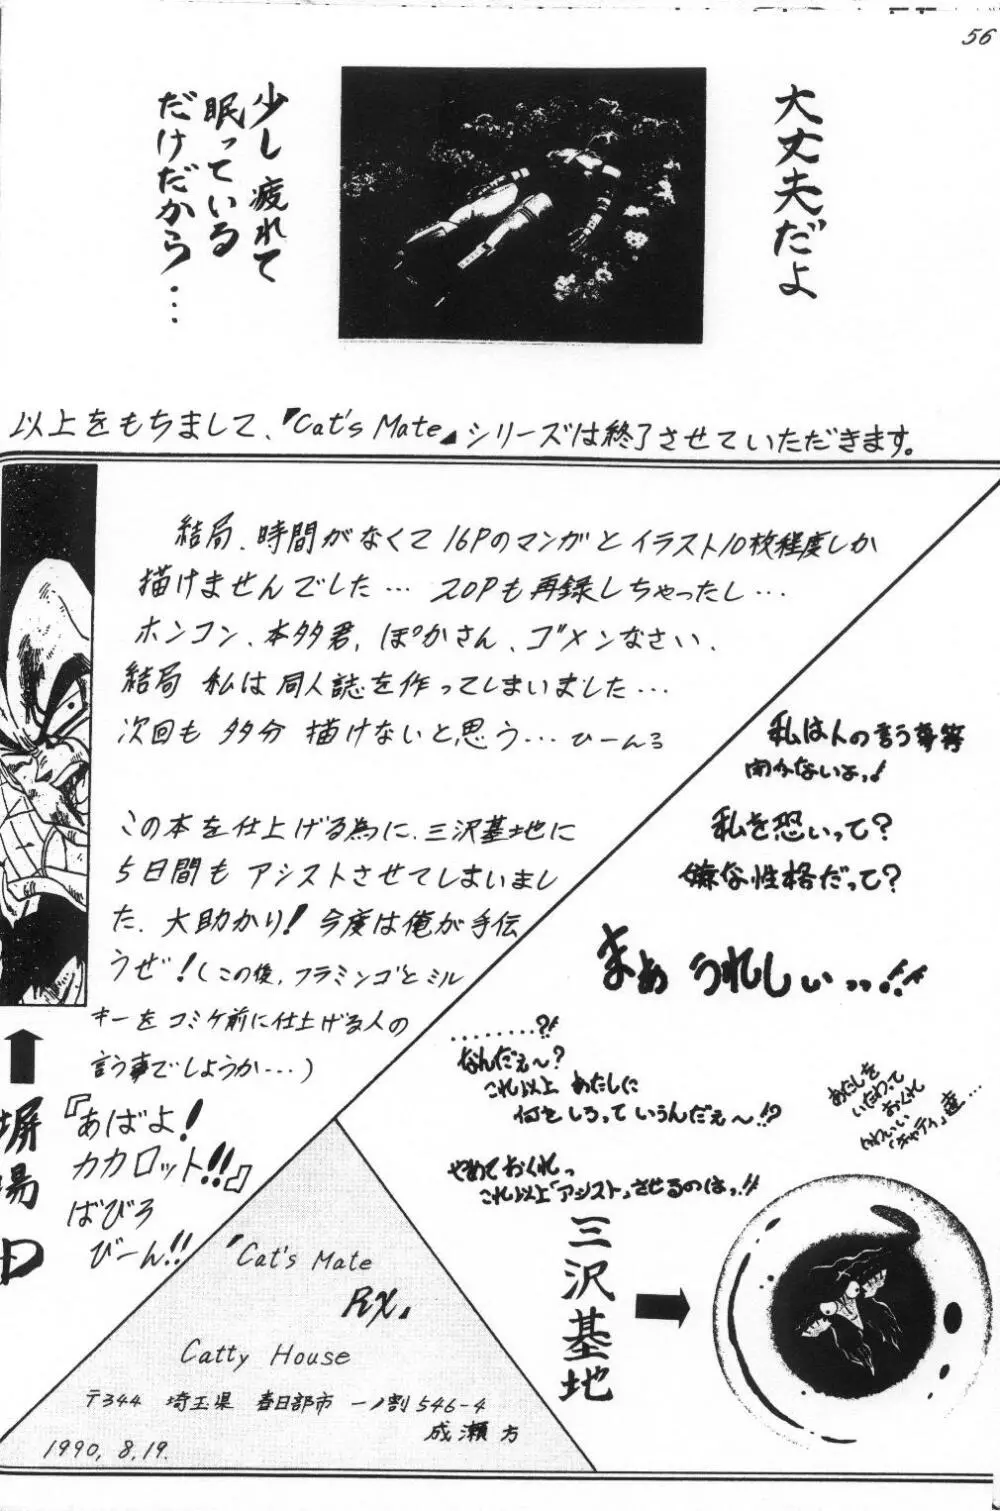 56
大丈夫だよ
少し疲れて
眠っている
だけだから…
以上をもちまして、『Cat's Mate』シリーズは終了させていただきます。
結局、時間がなくて16Pのマンガとイラスト10枚程度しか
描けませんでした… 20Pも再録しちゃったし…
ホンコン、本多君、ぽかさん、ゴメンなさい、
結局 私は同人誌を作ってしまいました…
次回も 多分 描けないと思う… ひーんろ
この本を仕上げる為に、三沢基地に
5日間も アシストさせてしまいまし
た、大助かり! 今度は俺が手伝
うぜ!(この後、フラミンゴとミル
キーをコミケ前に仕上げる人の
言う事でしようか…)
『あばよ!
カカロット!!』
ばびろ
びーん!!
私は人の言う事等
聞かないよっ!
私を恐いって?
嫌な性格だって?
まぁ うれしぃ…!!
………?!
なんだぇ〜?
これ以上 あたしに
何をしろって いうんだぇ〜!?
やめておくれっ
これ以上「アシスト」させるのはっ!!
あたしを
いたわって
おくれ
かわいい
「キャティ」達…
三沢基地
『Cat's Mate
RX』
Catty House
〒344 埼玉県 春日部市 一ノ割546-4
成瀬 方
1990, 8, 19.